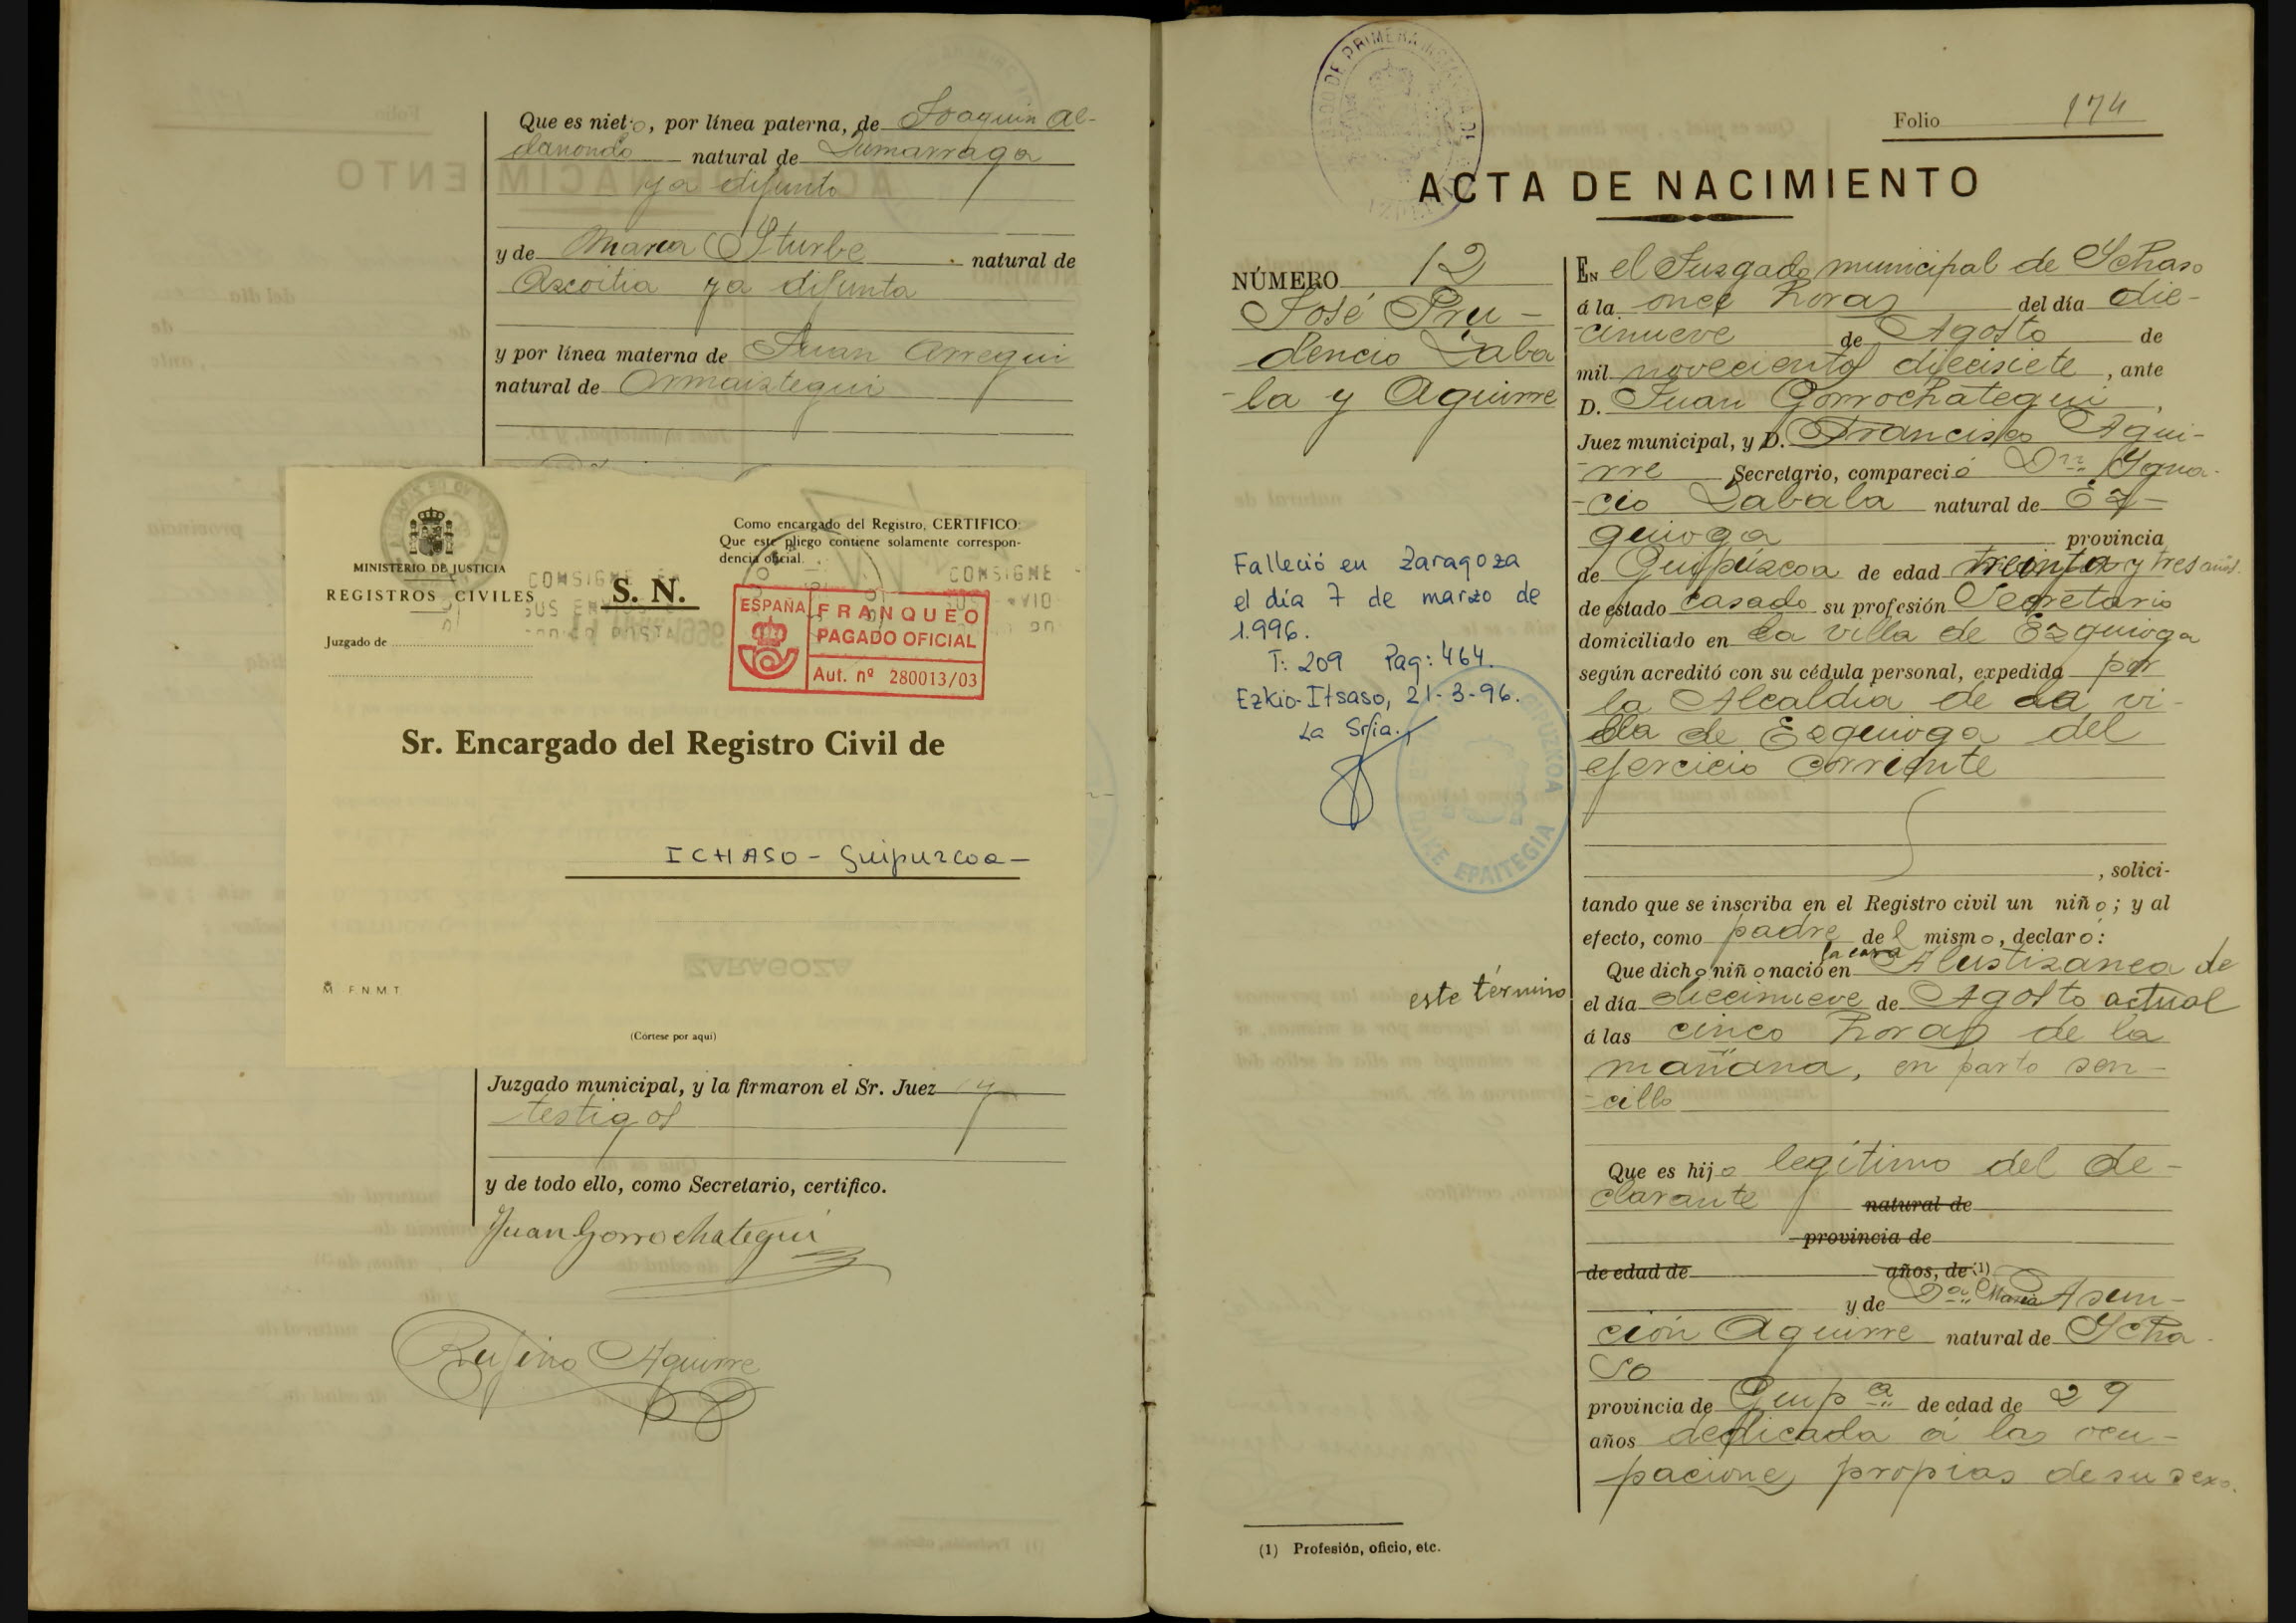 Que es nieto, por línea paterna, de Joaquin Al-
danondo natural de Zumarraga
ya difunto
y de Maria Yturbe natural de
Azcoitia ya difunta
y por línea materna de Juan Arregui
natural de Ormaiztegui
MINISTERIO DE JUSTICIA
REGISTROS CIVILES
Juzgado de
S. N.
Como encargado del Registro, CERTIFICO:
Que este pliego contiene solamente correspon-
dencia oficial.
CONSIGNE
CONSIGNE
ESPAÑA
FRANQUEO
PAGADO OFICIAL
Aut. nº 280013/03
Sr. Encargado del Registro Civil de
ICHASO - Guipuzcoa -
ZARAGOZA
F.N.M.T.
(Córtese por aquí)
Juzgado municipal, y la firmaron el Sr. Juez y
testigos
y de todo ello, como Secretario, certifico.
Juan Gorrochategui
Rufino Aguirre
Folio 174
ACTA DE NACIMIENTO
NÚMERO 12
José Pru-
dencio Zaba
-la y Aguirre
Falleció en Zaragoza
el día 7 de marzo de
1.996.
T: 209 Pag: 464.
Ezkio-Itsaso, 21-3-96.
La Sria.
GIPUZKOA
BAKE EPAITEGIA
este término
EN el Juzgado municipal de Ychaso
á la once horas del día die-
-cinueve de Agosto de
mil novecientos diecisiete, ante
D. Juan Gorrochategui,
Juez municipal, y D. Francisco Agui-
-rre Secretario, compareció Dn Ygna-
-cio Zabala natural de Ez-
quioga provincia
de Guipúzcoa de edad treinta y tres años
de estado casado su profesión Secretario
domiciliado en la villa de Ezquioga
según acreditó con su cédula personal, expedida por
la Alcaldia de la vi-
lla de Ezquioga del
ejercicio corriente
, solici-
tando que se inscriba en el Registro civil un niño; y al
efecto, como padre del mismo, declaró:
Que dicho niño nació en la casa Alustizanea de
el día diecinueve de Agosto actual
á las cinco horas de la
mañana, en parto sen-
-cillo
Que es hijo legítimo del de-
clarante natural de
provincia de
de edad de años, de (1)
y de Dª Maria Asun-
ción Aguirre natural de Ycha-
so
provincia de Guipª de edad de 29
años dedicada á las ocu-
paciones propias de su sexo.
(1) Profesión, oficio, etc.